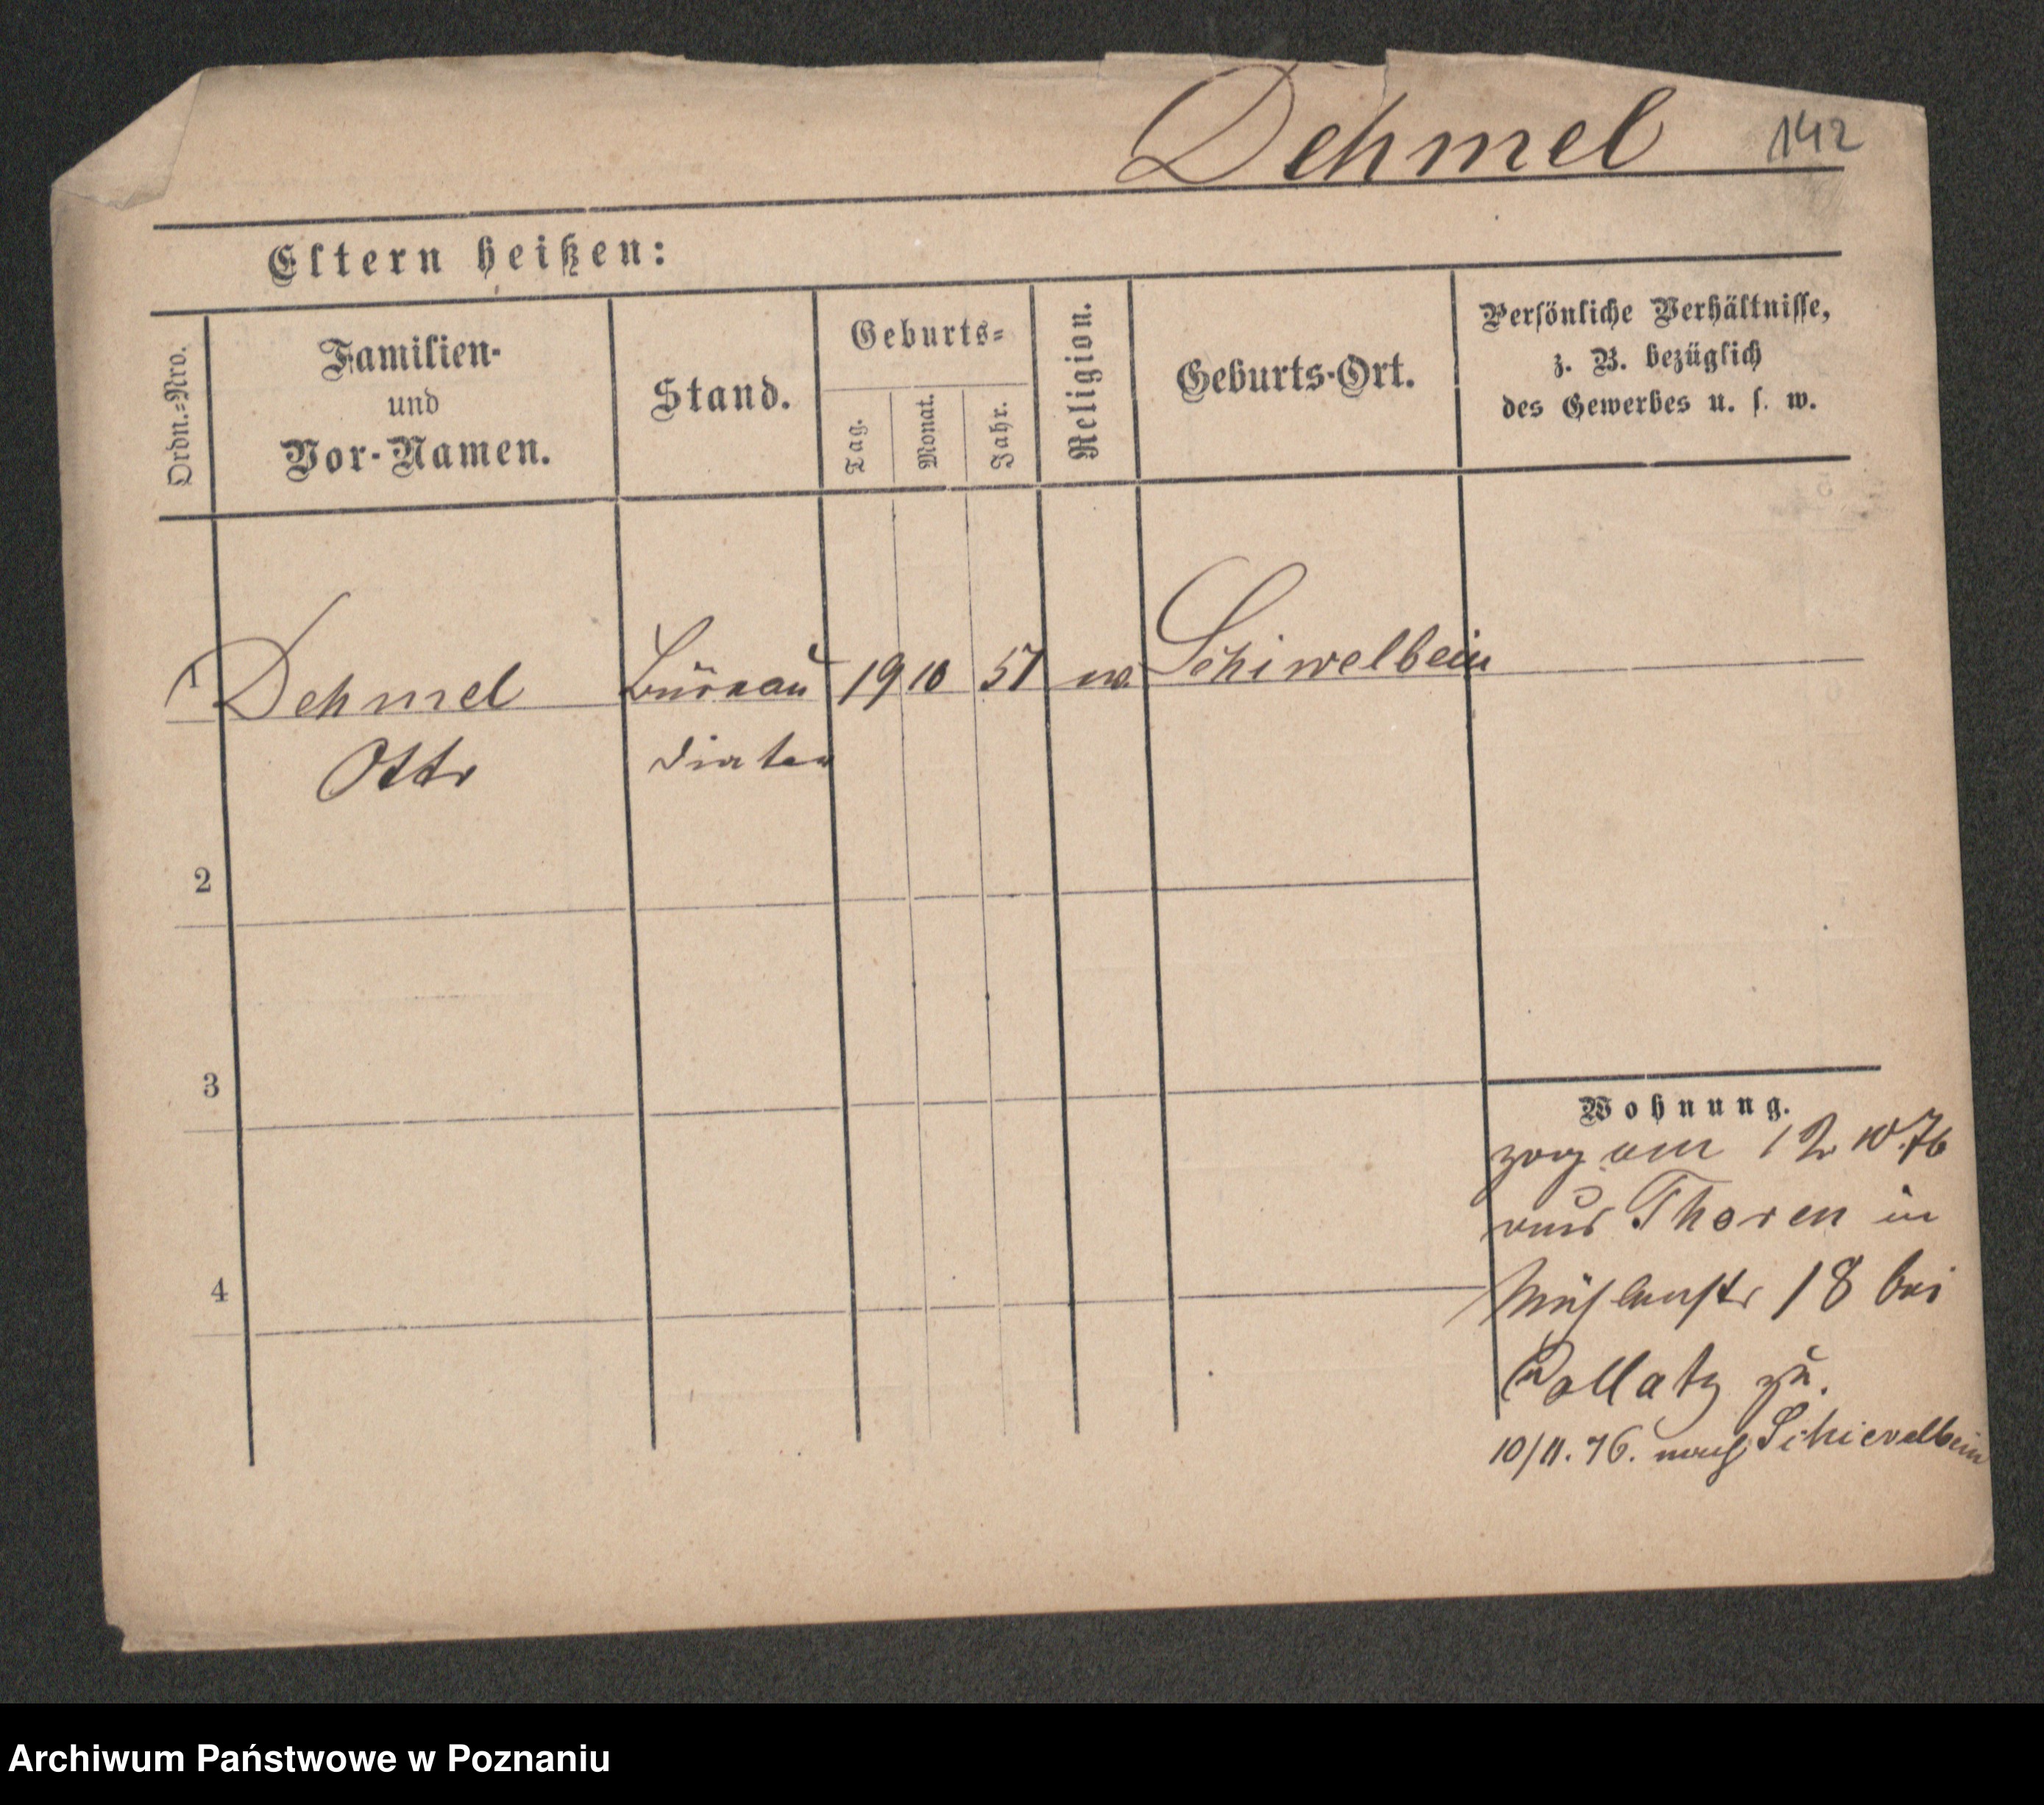 Dehmel 142
Eltern heißen:
Ordn.-Nro.
Familien-
und
Vor-Namen.
Stand.
Geburts-
Tag.
Monat.
Jahr.
Religion.
Geburts-Ort.
Persönliche Verhältnisse,
z. B. bezüglich
des Gewerbes u. s. w.
1 Dehmel Büreau 19 10 51 ev. Schiwelbein
Otto diätar
2
3
4
Wohnung.
zog am 12 10.76
aus Thoren in
Mühlenstr 18 bei
Pollatz zu.
10/11.76. nach Schievelbein
Archiwum Państwowe w Poznaniu